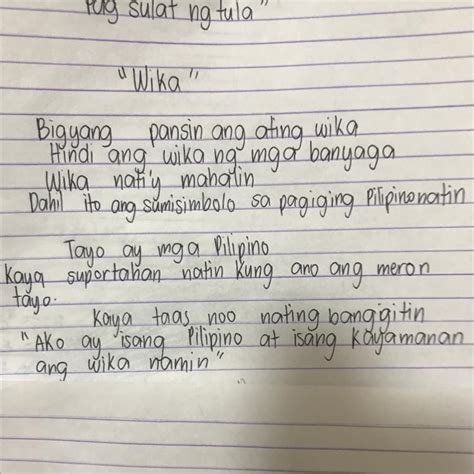 Pag sulat ng tula"
"Wika"
Bigyang pansin ang ating wika
Hindi ang wika ng mga banyaga
Wika nati'y mahalin
Dahil ito ang sumisimbolo sa pagiging Pilipino natin
Tayo ay mga Pilipino
Kaya suportahan natin kung ano ang meron
tayo.
Kaya taas noo nating banggitin
"Ako ay isang Pilipino at isang kayamanan
ang wika namin"